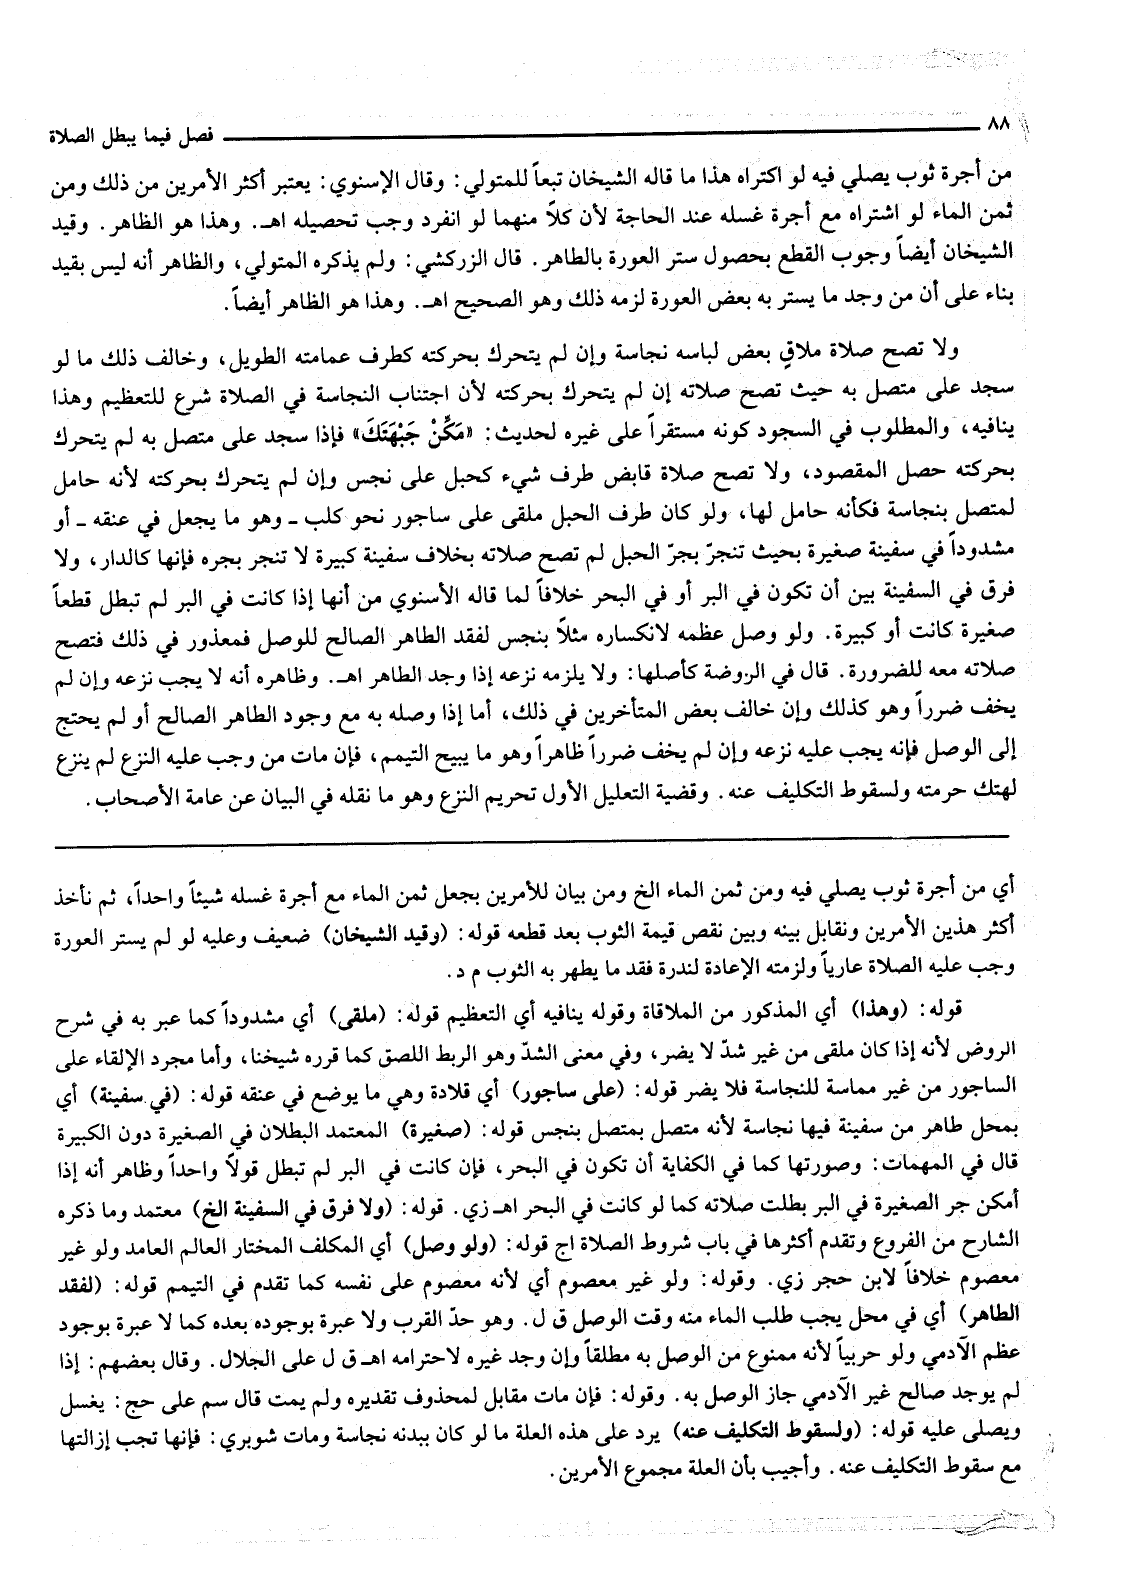 ٨٨ فصل فيما يبطل الصلاة
من أجرة ثوب يصلي فيه لو اكتراه هذا ما قاله الشيخان تبعاً للمتولي: وقال الإسنوي: يعتبر أكثر الأمرين من ذلك ومن
ثمن الماء لو اشتراه مع أجرة غسله عند الحاجة لأن كلاً منهما لو انفرد وجب تحصيله اهـ. وهذا هو الظاهر. وقيد
الشيخان أيضاً وجوب القطع بحصول ستر العورة بالطاهر. قال الزركشي: ولم يذكره المتولي، والظاهر أنه ليس بقيد
بناء على أن من وجد ما يستر به بعض العورة لزمه ذلك وهو الصحيح اهـ. وهذا هو الظاهر أيضاً.
ولا تصح صلاة ملاقٍ بعض لباسه نجاسة وإن لم يتحرك بحركته كطرف عمامته الطويل، وخالف ذلك ما لو
سجد على متصل به حيث تصح صلاته إن لم يتحرك بحركته لأن اجتناب النجاسة في الصلاة شرع للتعظيم وهذا
ينافيه، والمطلوب في السجود كونه مستقراً على غيره لحديث: «مَكِّنْ جَبْهَتَكَ» فإذا سجد على متصل به لم يتحرك
بحركته حصل المقصود، ولا تصح صلاة قابض طرف شيء كحبل على نجس وإن لم يتحرك بحركته لأنه حامل
لمتصل بنجاسة فكأنه حامل لها، ولو كان طرف الحبل ملقى على ساجور نحو كلب ـ وهو ما يجعل في عنقه ـ أو
مشدوداً في سفينة صغيرة بحيث تنجرّ بجرّ الحبل لم تصح صلاته بخلاف سفينة كبيرة لا تنجر بجره فإنها كالدار، ولا
فرق في السفينة بين أن تكون في البر أو في البحر خلافاً لما قاله الأسنوي من أنها إذا كانت في البر لم تبطل قطعاً
صغيرة كانت أو كبيرة. ولو وصل عظمه لانكساره مثلاً بنجس لفقد الطاهر الصالح للوصل فمعذور في ذلك فتصح
صلاته معه للضرورة. قال في الروضة كأصلها: ولا يلزمه نزعه إذا وجد الطاهر اهـ. وظاهره أنه لا يجب نزعه وإن لم
يخف ضرراً وهو كذلك وإن خالف بعض المتأخرين في ذلك، أما إذا وصله به مع وجود الطاهر الصالح أو لم يحتج
إلى الوصل فإنه يجب عليه نزعه وإن لم يخف ضرراً ظاهراً وهو ما يبيح التيمم، فإن مات من وجب عليه النزع لم ينزع
لهتك حرمته ولسقوط التكليف عنه. وقضية التعليل الأول تحريم النزع وهو ما نقله في البيان عن عامة الأصحاب.
أي من أجرة ثوب يصلي فيه ومن ثمن الماء الخ ومن بيان للأمرين بجعل ثمن الماء مع أجرة غسله شيئاً واحداً، ثم نأخذ
أكثر هذين الأمرين ونقابل بينه وبين نقص قيمة الثوب بعد قطعه قوله: (وقيد الشيخان) ضعيف وعليه لو لم يستر العورة
وجب عليه الصلاة عارياً ولزمته الإعادة لندرة فقد ما يطهر به الثوب م د.
قوله: (وهذا) أي المذكور من الملاقاة وقوله ينافيه أي التعظيم قوله: (ملقى) أي مشدوداً كما عبر به في شرح
الروض لأنه إذا كان ملقى من غير شدّ لا يضر، وفي معنى الشدّ وهو الربط اللصق كما قرره شيخنا، وأما مجرد الإلقاء على
الساجور من غير مماسة للنجاسة فلا يضر قوله: (على ساجور) أي قلادة وهي ما يوضع في عنقه قوله: (في سفينة) أي
بمحل طاهر من سفينة فيها نجاسة لأنه متصل بمتصل بنجس قوله: (صغيرة) المعتمد البطلان في الصغيرة دون الكبيرة
قال في المهمات: وصورتها كما في الكفاية أن تكون في البحر، فإن كانت في البر لم تبطل قولاً واحداً وظاهر أنه إذا
أمكن جر الصغيرة في البر بطلت صلاته كما لو كانت في البحر اهـ زي. قوله: (ولا فرق في السفينة الخ) معتمد وما ذكره
الشارح من الفروع وتقدم أكثرها في باب شروط الصلاة اج قوله: (ولو وصل) أي المكلف المختار العالم العامد ولو غير
معصوم خلافاً لابن حجر زي. وقوله: ولو غير معصوم أي لأنه معصوم على نفسه كما تقدم في التيمم قوله: (لفقد
الطاهر) أي في محل يجب طلب الماء منه وقت الوصل ق ل. وهو حدّ القرب ولا عبرة بوجوده بعده كما لا عبرة بوجود
عظم الآدمي ولو حربياً لأنه ممنوع من الوصل به مطلقاً وإن وجد غيره لاحترامه اهـ ق ل على الجلال. وقال بعضهم: إذا
لم يوجد صالح غير الآدمي جاز الوصل به. وقوله: فإن مات مقابل لمحذوف تقديره ولم يمت قال سم على حج: يغسل
ويصلى عليه قوله: (ولسقوط التكليف عنه) يرد على هذه العلة ما لو كان ببدنه نجاسة ومات شوبري: فإنها تجب إزالتها
مع سقوط التكليف عنه. وأجيب بأن العلة مجموع الأمرين.